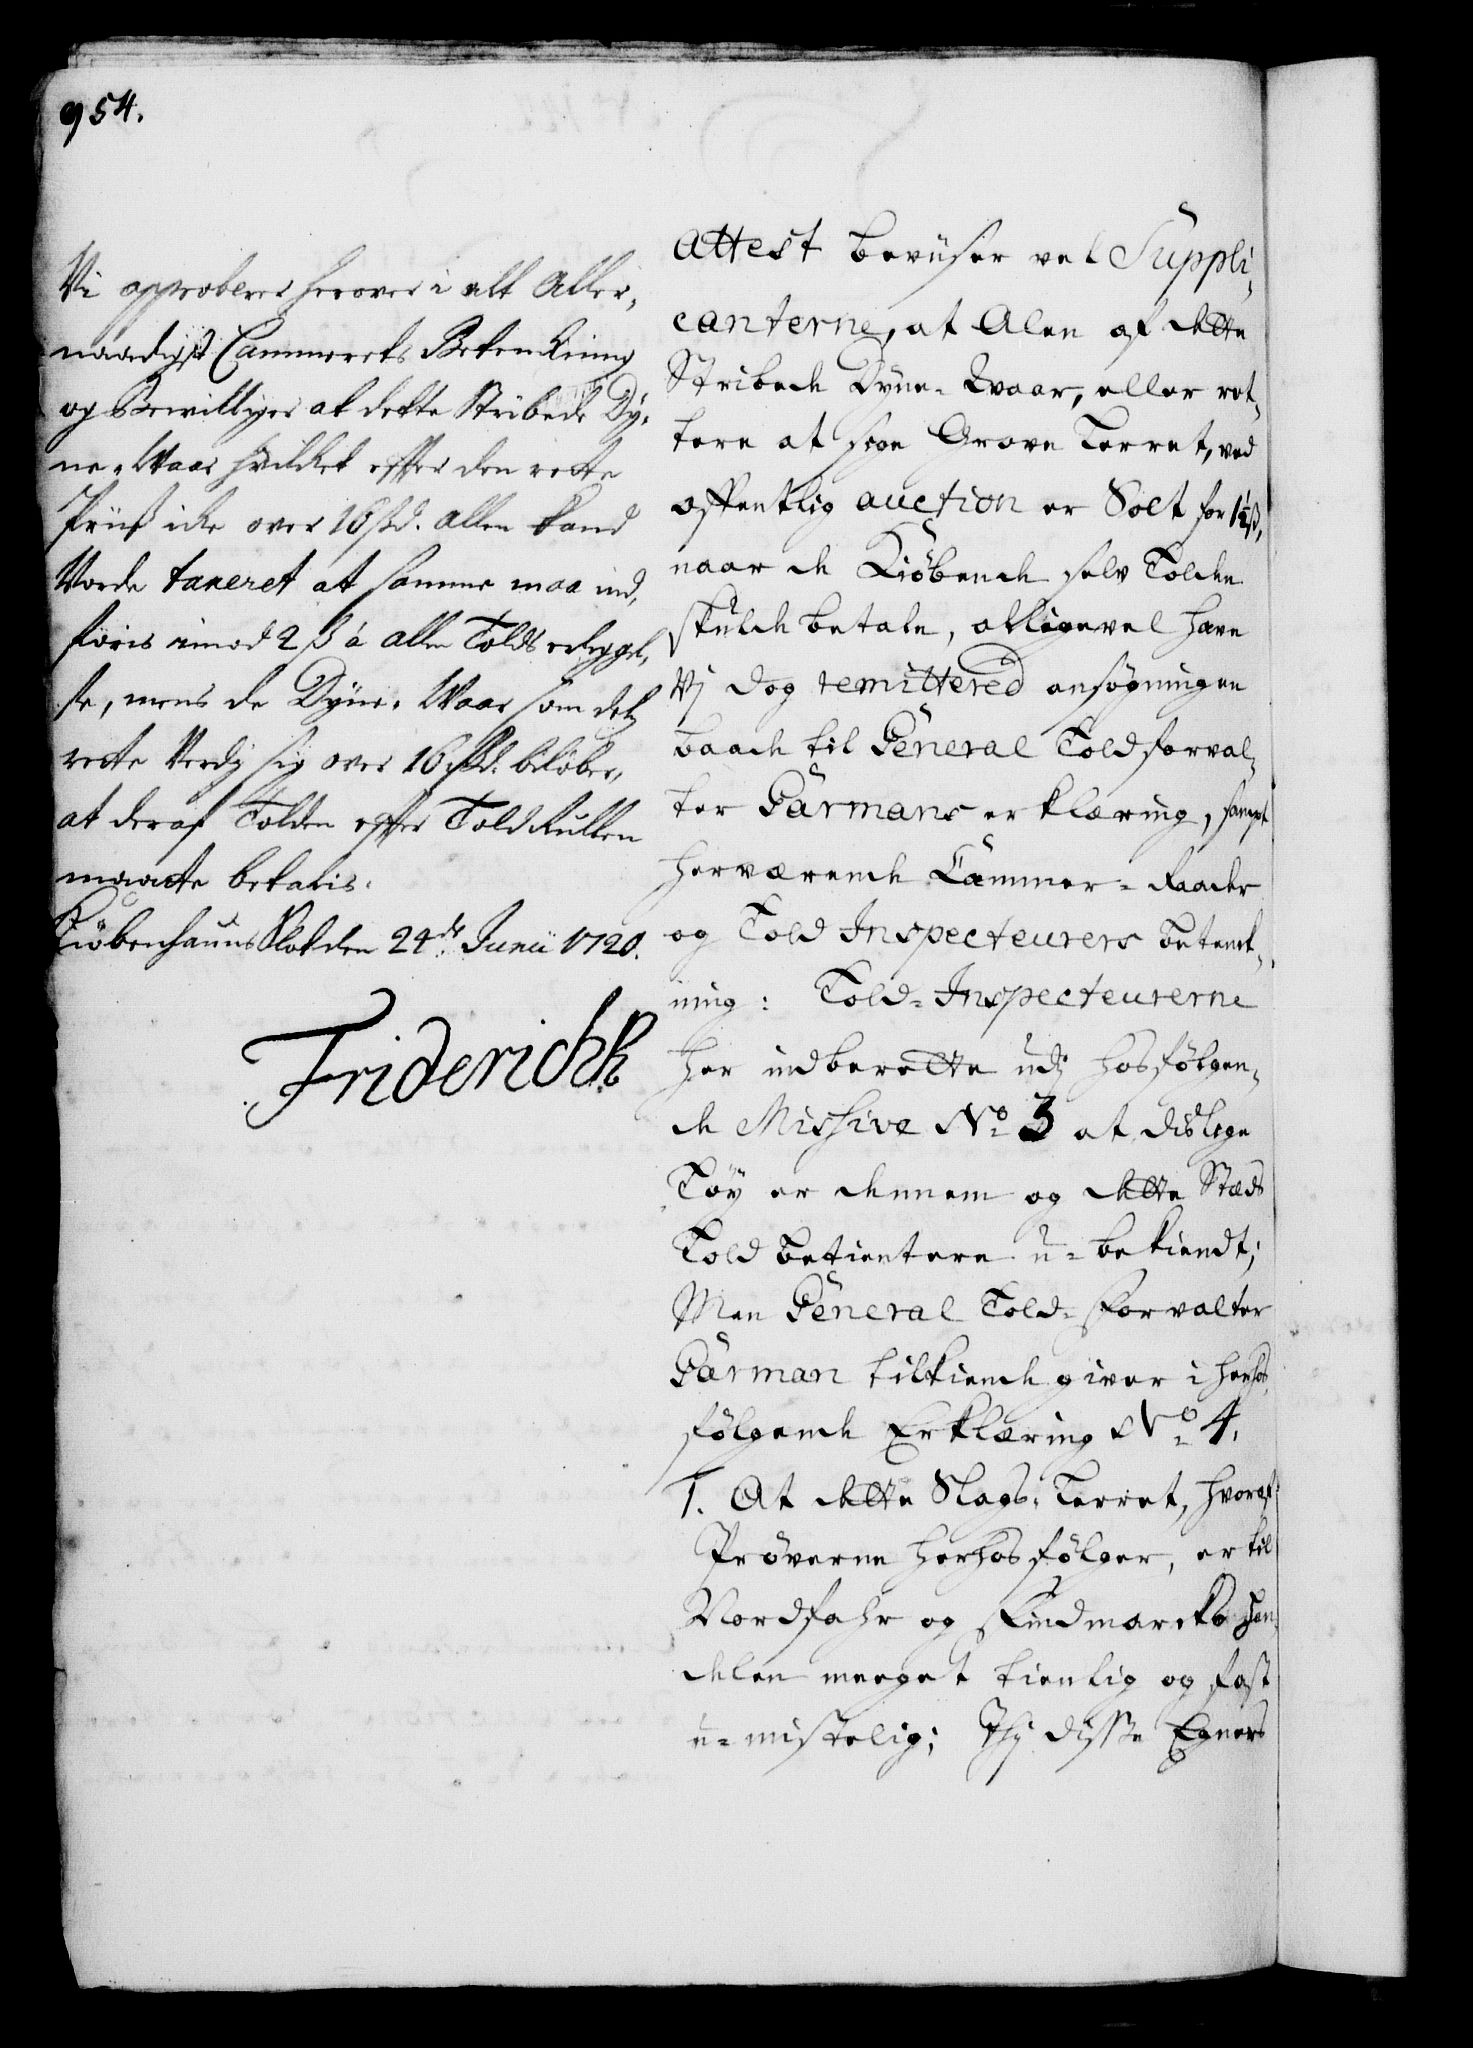 954.
Vi approberer herover i alt Aller,
naadigst Cammerets Betenckning
og Bevilliger at dette Stribede Dy,
ne-Waar hvilcket effter den rette
Priis icke over 16 sk d. Allen kand
Vorde taxeret at samme maa ind,
føris imod 2 ß á Allen Tolds erleggel,
se, mens de Dyne-Waar som detz
rette Verdj sig over 16 skd. beløber,
at deraf Tolden effter ToldRullen
maatte betalis.
Kiøbenhauns Slot den 24de Junii 1720.
FriderichR
Attest beviiser vel Suppli,
canterne, at Alen af dette
Stribede Dyne-Waar, eller ret,
tere at sige Grove Lerret, ved
offentlig auction er Solt for 1½ ß,
naar de Kiøbende selv Tolden
skulde betale, alligevel have
Vj dog remittered ansøgningen
baade til General Toldforval,
ter Gärmans erklæring, sampt
herværende Cammer-Raader
og Told Inspecteurers betenck,
ning: Told-Inspecteurerne
her indberette udj hosfølgen,
de Missive No 3 at dislige
Tøy er dennem og dette Stæds
Told betientere u-bekiendt;
Men General Told-Forvalter
Gärman tilkiende giver i herhos,
følgende Erklæring No 4.
1. At dette Slags Lerret, hvoraf
Prøverne herhos følger, er til
Nordfahr og Findmarcks Han,
delen meeget tienlig og fast
u-mistelig; Thj disse Egners